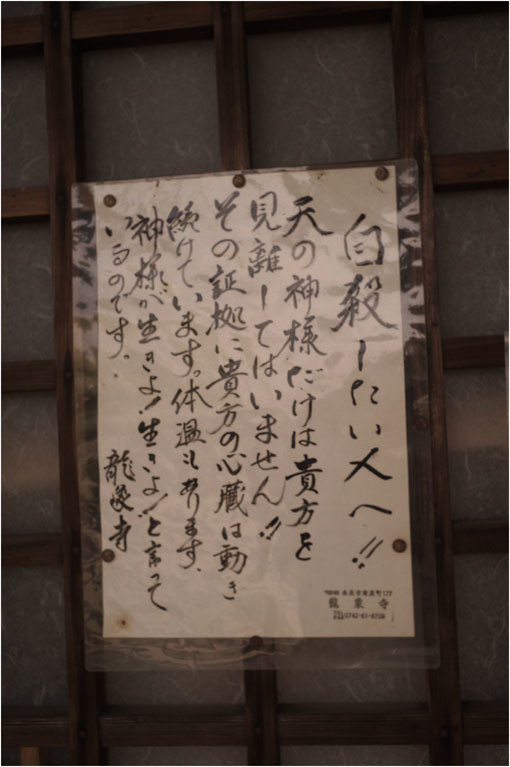 自殺したい人へ!!
天の神様だけは貴方を
見離してはいません!!
その証拠に貴方の心臓は動き
続けています。体温もあります、
神様が生きよ!生きよ!と言って
いるのです。
龍象寺
龍象寺